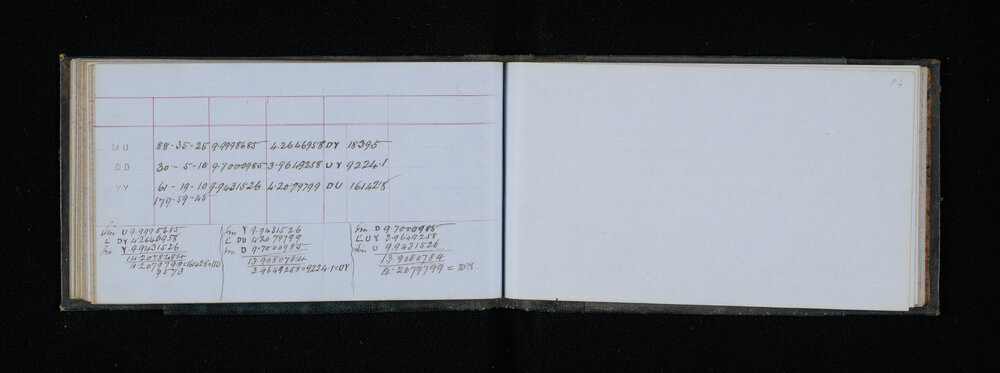 UU 88-35-25 9.9998685 4.2646958 DY 18395
DD 30-5-10 9.7000985 3.9649258 UY 9224.1
YY 61-19-10 9.9431526 4.2079799 DU 16142.8
179.59.45
Sin U 9.9998685
L DY 4.2646958
Sin Y 9.9431526
14.2078484
4.2079799
Sin Y 9.9431526
L DU 4.2079799
Sin D 9.7000985
13.9080784
3.9649258=9224.1=UY
Sin D 9.7000985
L UY 3.9649258
Sin U 9.9431526
13.9080784
4.2079799 = DY
74